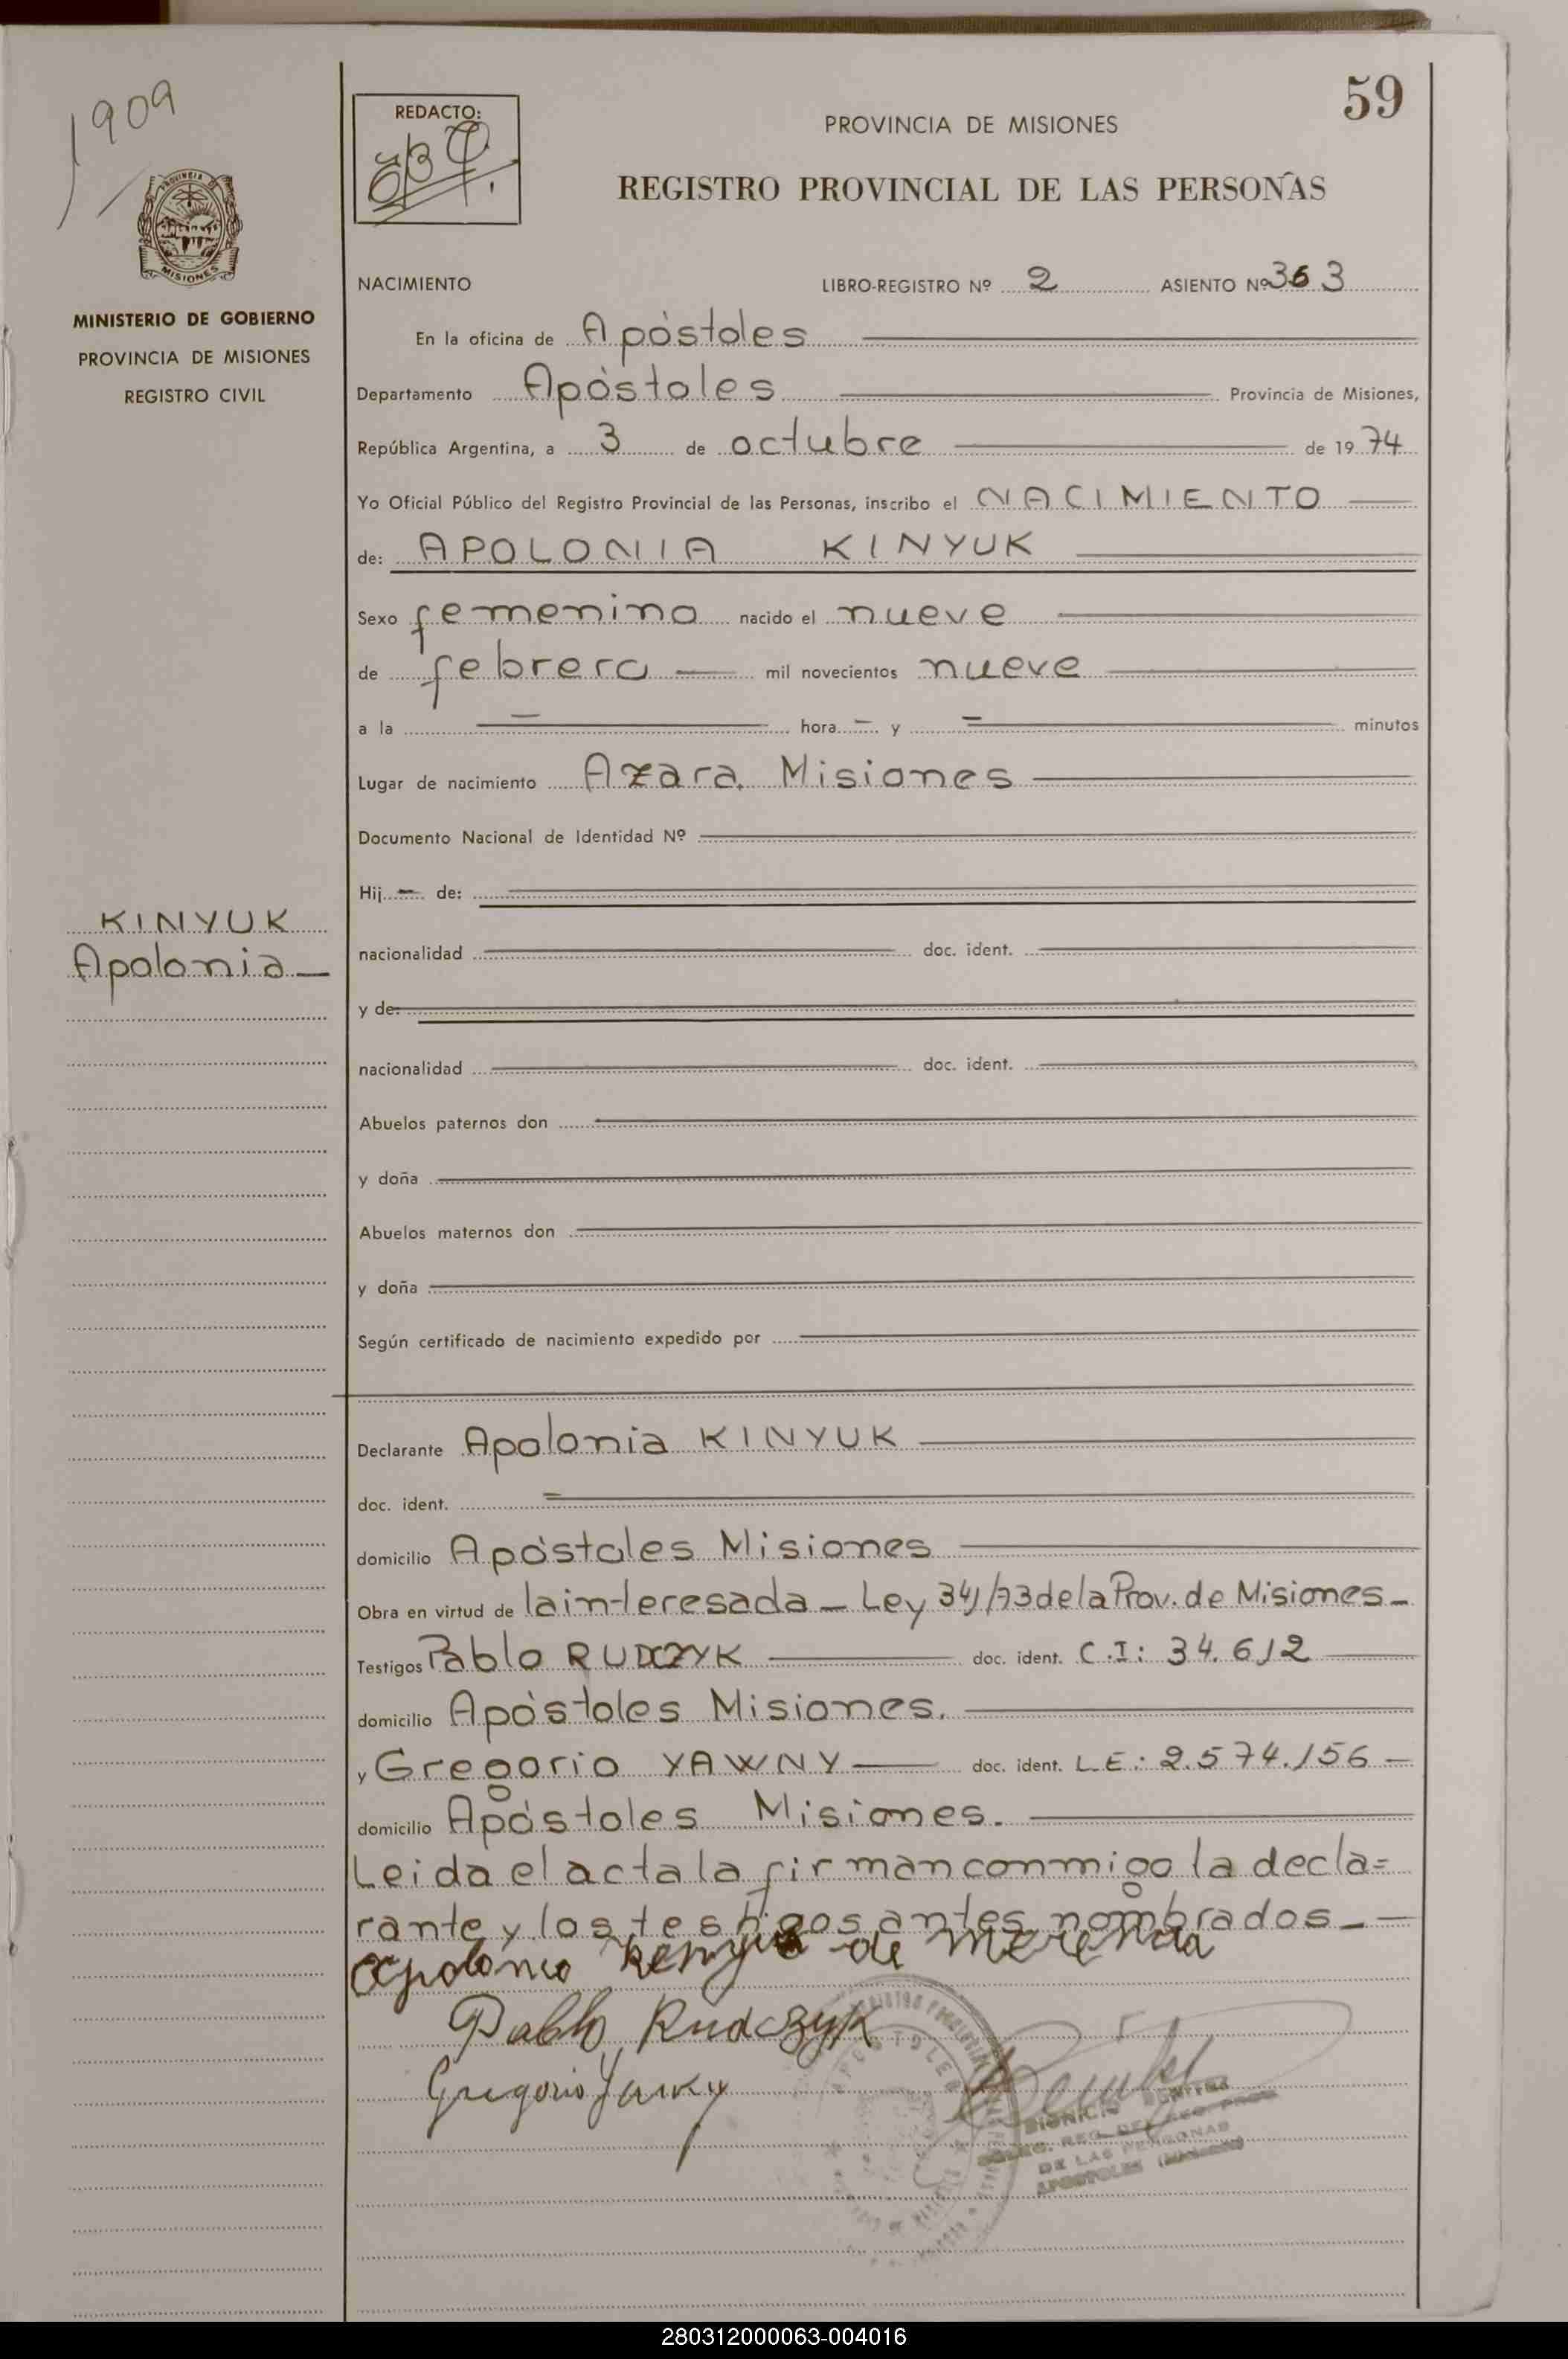 1909
59
REDACTO:
PROVINCIA DE MISIONES
REGISTRO PROVINCIAL DE LAS PERSONAS
PROVINCIA DE
MISIONES
MINISTERIO DE GOBIERNO
PROVINCIA DE MISIONES
REGISTRO CIVIL
NACIMIENTO LIBRO-REGISTRO Nº 2 ASIENTO Nº 363
En la oficina de Apóstoles
Departamento Apóstoles Provincia de Misiones,
República Argentina, a 3 de octubre de 1974
Yo Oficial Público del Registro Provincial de las Personas, inscribo el NACIMIENTO
de: APOLONIA KINYUK
Sexo femenino nacido el nueve
de febrero mil novecientos nueve
a la hora y minutos
Lugar de nacimiento Azara. Misiones
Documento Nacional de Identidad Nº
Hij de:
KINYUK
Apolonia
nacionalidad doc. ident.
y de:
nacionalidad doc. ident.
Abuelos paternos don
y doña
Abuelos maternos don
y doña
Según certificado de nacimiento expedido por
Declarante Apolonia KINYUK
doc. ident.
domicilio Apóstoles Misiones
Obra en virtud de la interesada - Ley 341/73 de la Prov. de Misiones -
Testigos Pablo RUDCZYK doc. ident. C.I: 34.612
domicilio Apóstoles Misiones.
y Gregorio YAWNY doc. ident. L.E: 2.574.156 -
domicilio Apóstoles Misiones.
Leida el acta la firman conmigo la decla=
rante y los testigos antes nombrados -
Pablo Rudczyk
Gregorio
APOSTOLES
DE LAS PERSONAS
APOSTOLES (MISIONES)
280312000063-004016